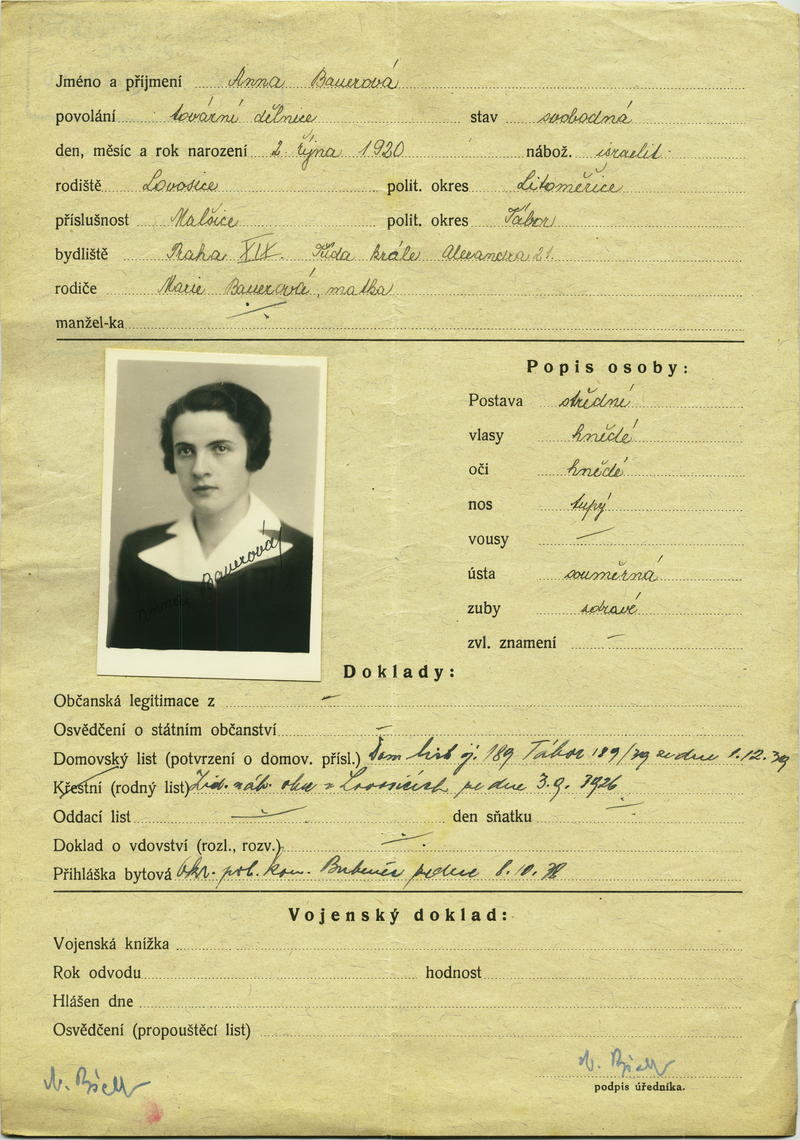 Jméno a příjmení Anna Bauerová
povolání tovární dělnice stav svobodná
den, měsíc a rok narození 2. října 1920 nábož. israelit.
rodiště Lovosice polit. okres Litoměřice
příslušnost Malšice polit. okres Tábor
bydliště Praha XIX. Třída krále Alexandra 21.
rodiče Marie Bauerová, matka
manžel-ka
Popis osoby:
Postava střední
vlasy hnědé
oči hnědé
nos tupý
vousy —
ústa souměrná
Bauerová
zuby zdravé
zvl. znamení —
Doklady:
Občanská legitimace z —
Osvědčení o státním občanství —
Domovský list (potvrzení o domov. přísl.) Dom. list čj. 189 Tábor 189/39 ze dne 1.12.39
Křestní (rodný list) Žid. náb. obce v Lovosicích ze dne 3.9. 1926
Oddací list — den sňatku —
Doklad o vdovství (rozl., rozv.) —
Přihláška bytová Okr. pol. kom. Bubeneč ze dne 8.10.38
Vojenský doklad:
Vojenská knížka
Rok odvodu hodnost
Hlášen dne
Osvědčení (propouštěcí list)
podpis úředníka.